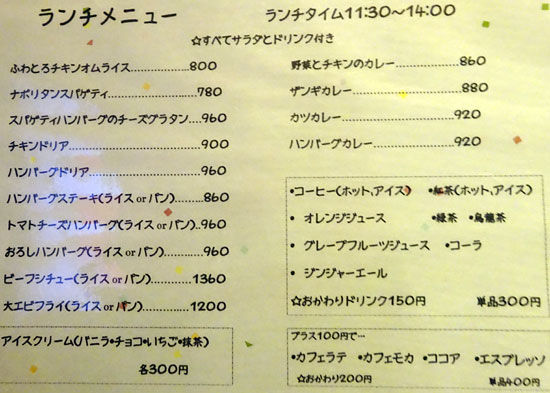 ランチメニュー
ランチタイム11:30〜14:00
☆すべてサラダとドリンク付き
ふわとろチキンオムライス..................800
ナポリタンスパゲティ.......................780
スパゲティハンバーグのチーズグラタン...960
チキンドリア..................................900
ハンバーグドリア.............................960
ハンバーグステーキ(ライス or パン)........860
トマトチーズハンバーグ(ライス or パン)..960
おろしハンバーグ(ライス or パン)...........960
ビーフシチュー(ライス or パン)............1360
大エビフライ(ライス or パン)...............1200
アイスクリーム(バニラ•チョコ•いちご•抹茶)
各300円
野菜とチキンのカレー................860
ザンギカレー............................880
カツカレー...............................920
ハンバーグカレー......................920
•コーヒー(ホット,アイス) •紅茶(ホット,アイス)
• オレンジジュース •緑茶 •烏龍茶
• グレープフルーツジュース •コーラ
• ジンジャーエール
☆おかわりドリンク150円 単品300円
プラス100円で…
•カフェラテ •カフェモカ •ココア •エスプレッソ
☆おかわり200円 単品400円